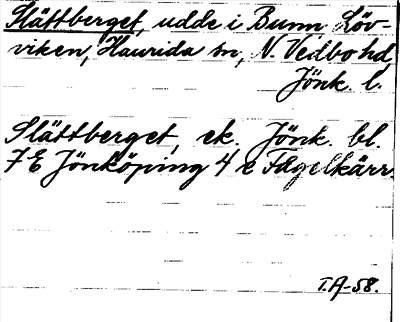 Slättberget, udde i Bunn Löv-
viken, Haurida sn, N. Vedbo hd,
Jönk. l.
Slättberget, ek. Jönk. bl.
7E Jönköping 4 e Fågelkärr
T.A-58.